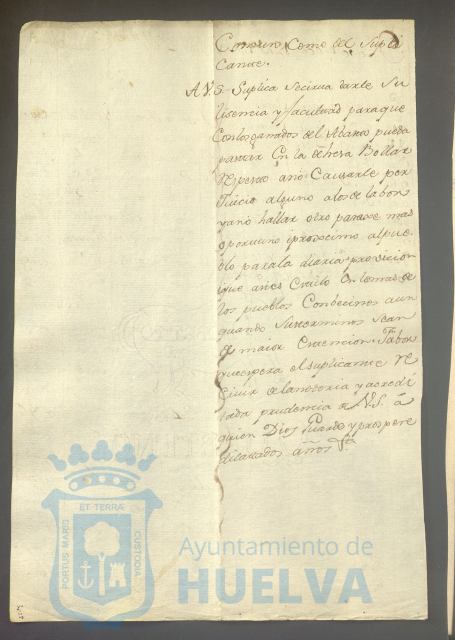 Comun, como del Supli
cante.
A V.S. Suplica se sirva darle su
lisencia y facultad para que
con los ganados del Abasto pueda
pastar en la dehesa Bollar
respecto a no causarle per
juicio alguno a los de labor
y a no hallar otro parage mas
oportuno i procsimo al pue
blo para la diaria provicion
que âi es estilo en los mas de
los pueblos conbecinos aun
quando sus terminos sean
de maior extencion. Fabor
que espera el suplicante re
civir de la notoria y acredi
tada prudencia de V.S. â
quien Dios guarde y prospere
dilatados años
PORTUS MARIS
ET TERRA
CUSTODIA
Ayuntamiento de
HUELVA